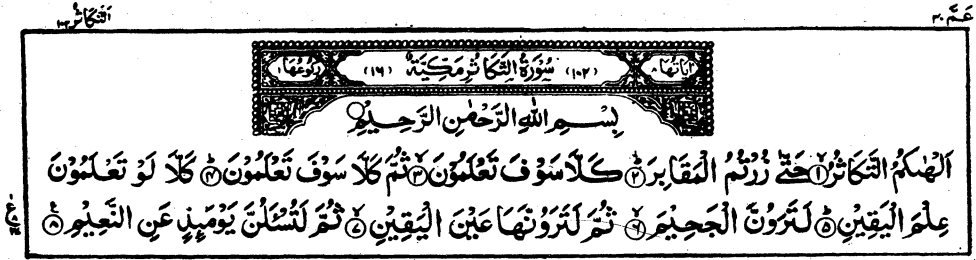 عَمَّ ٣٠ التَّكَاثُر ١٠٢
اٰيَاتُهَا ٨ (١٠٢) سُوۡرَةُ التَّكَاثُرِ مَكِّيَّةٌ (١٦) رُكُوۡعُهَا ١
بِسۡمِ اللّٰهِ الرَّحۡمٰنِ الرَّحِيۡمِ
اَلۡهٰىكُمُ التَّكَاثُرُ ۙ‏﴿۱﴾ حَتّٰى زُرۡتُمُ الۡمَقَابِرَ ؕ‏﴿۲﴾ كَلَّا سَوۡفَ تَعۡلَمُوۡنَ ۙ‏﴿۳﴾ ثُمَّ كَلَّا سَوۡفَ تَعۡلَمُوۡنَ ؕ‏﴿۴﴾ كَلَّا لَوۡ تَعۡلَمُوۡنَ
عِلۡمَ الۡيَقِيۡنِ ؕ‏﴿۵﴾ لَتَرَوُنَّ الۡجَحِيۡمَ ۙ‏﴿۶﴾ ثُمَّ لَتَرَوُنَّهَا عَيۡنَ الۡيَقِيۡنِ ۙ‏﴿۷﴾ ثُمَّ لَتُسۡـَٔلُنَّ يَوۡمَئِذٍ عَنِ النَّعِيۡمِ ‏﴿۸﴾